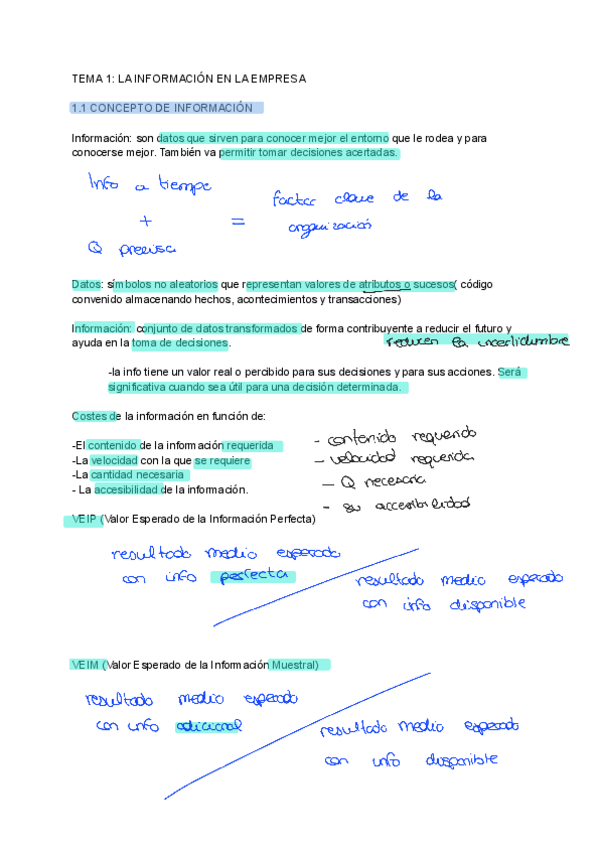 TEMA 1: LA INFORMACIÓN EN LA EMPRESA
1.1 CONCEPTO DE INFORMACIÓN
Información: son datos que sirven para conocer mejor el entorno que le rodea y para
conocerse mejor. También va permitir tomar decisiones acertadas.
Info a tiempo
+
Q precisa
=
factor clave de la
organización
Datos: símbolos no aleatorios que representan valores de atributos o sucesos( código
convenido almacenando hechos, acontecimientos y transacciones)
Información: conjunto de datos transformados de forma contribuyente a reducir el futuro y
ayuda en la toma de decisiones.
reducen la incertidumbre
-la info tiene un valor real o percibido para sus decisiones y para sus acciones. Será
significativa cuando sea útil para una decisión determinada.
Costes de la información en función de:
-El contenido de la información requerida
-La velocidad con la que se requiere
-La cantidad necesaria
- La accesibilidad de la información.
- contenido requerido
- velocidad requerida
- Q necesaria
- su accesibilidad
VEIP (Valor Esperado de la Información Perfecta)
resultado medio esperado
con info perfecta
resultado medio esperado
con info disponible
VEIM (Valor Esperado de la Información Muestral)
resultado medio esperado
con info adicional
resultado medio esperado
con info disponible